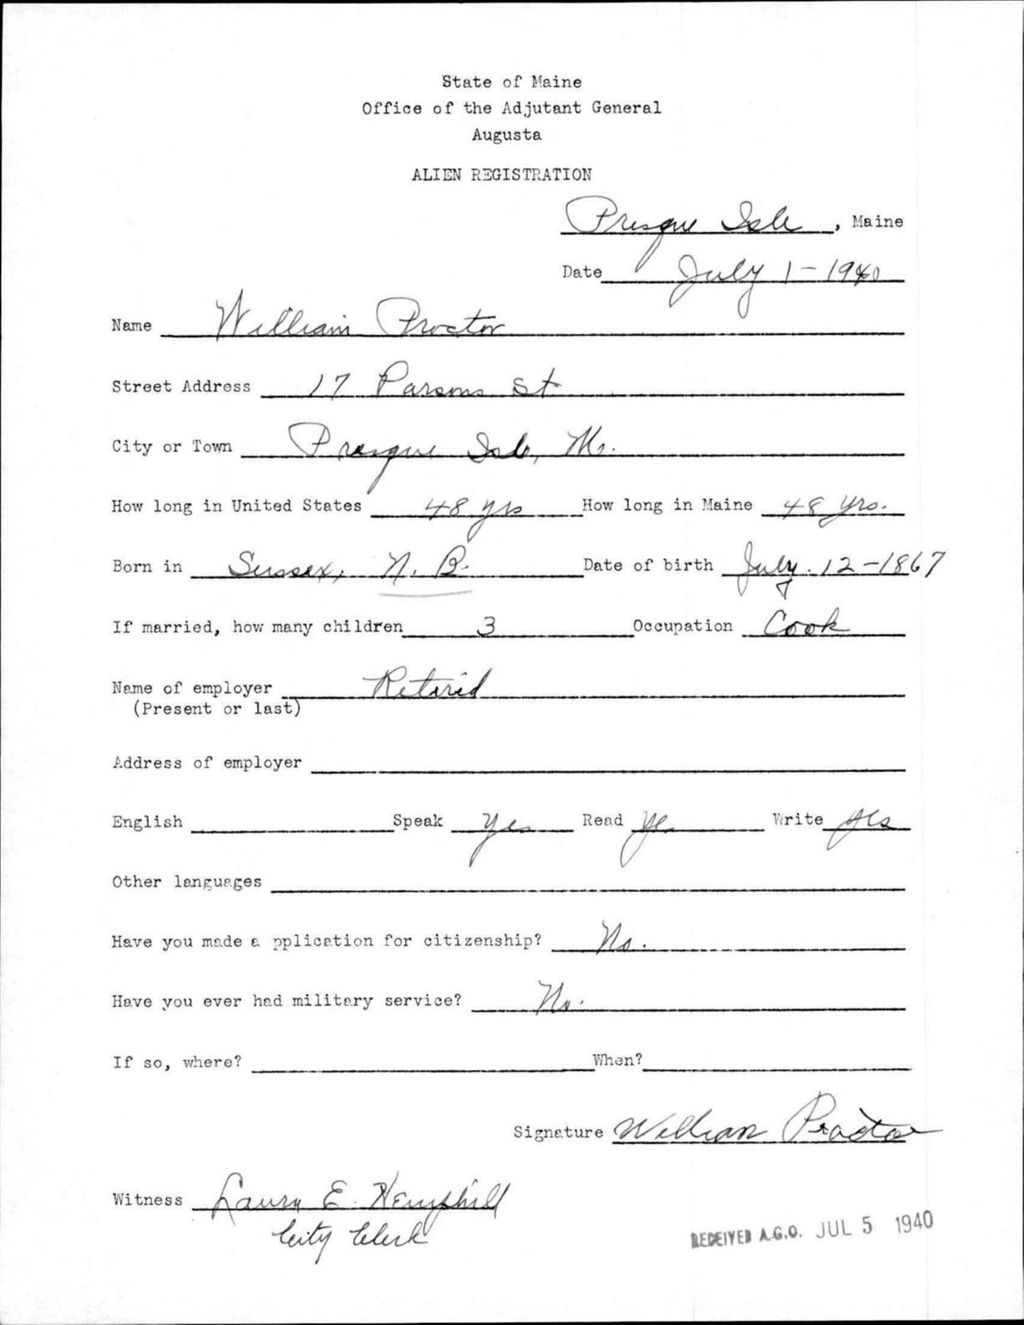 State of Maine
Office of the Adjutant General
Augusta
ALIEN REGISTRATION
Presque Isle, Maine
Date July 1 - 1940
Name William Proctor
Street Address 17 Parsons St
City or Town Presque Isle, Me.
How long in United States 48 yrs How long in Maine 48 yrs.
Born in Sussex, N. B. Date of birth July. 12 - 1867
If married, how many children 3 Occupation Cook
Name of employer Retired
(Present or last)
Address of employer
English Speak Yes Read Yes Write Yes
Other languages
Have you made a pplication for citizenship? No.
Have you ever had military service? No.
If so, where? When?
Signature William Proctor
Witness Laura E. Hemphill
City Clerk
RECEIVED A.G.O. JUL 5 1940